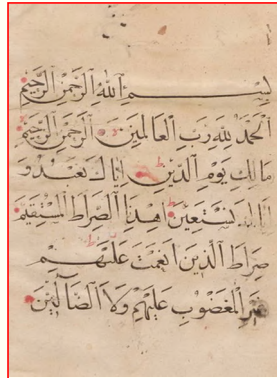 بسم الله الرحمن الرحيم
الحمد لله رب العالمين الرحمن الرحيم
مالك يوم الدين اياك نعبد و
اياك نستعين اهدنا الصراط المستقيم
صراط الذين انعمت عليهم
غير المغضوب عليهم ولا الضالين